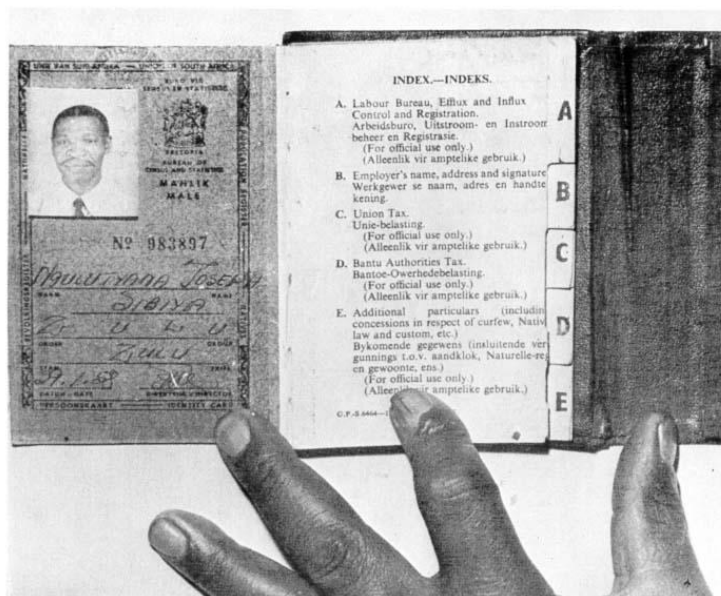 UNIE VAN SUID-AFRIKA — UNION OF SOUTH AFRICA
PRETORIA
BUREAU OF
CENSUS AND STATISTICS
MANLIK
MALE
Nº 983897
JOSEPH
NAAM NAME
SIBIYA
ZULU
GROEP GROUP
ZULU
DATUM - DATE
PERSOONSKAART — IDENTITY CARD
INDEX.—INDEKS.
A. Labour Bureau, Efflux and Influx
Control and Registration.
Arbeidsburo, Uitstroom- en Instroom
beheer en Registrasie.
(For official use only.)
(Alleenlik vir amptelike gebruik.)
B. Employer's name, address and signature
Werkgewer se naam, adres en handte
kening.
C. Union Tax.
Unie-belasting.
(For official use only.)
(Alleenlik vir amptelike gebruik.)
D. Bantu Authorities Tax.
Bantoe-Owerhedebelasting.
(For official use only.)
(Alleenlik vir amptelike gebruik.)
E. Additional particulars (includin
concessions in respect of curfew, Nativ
law and custom, etc.)
Bykomende gegewens (insluitende ver
gunnings t.o.v. aandklok, Naturelle-re
en gewoonte, ens.)
(For official use only.)
(Alleenlik vir amptelike gebruik.)
A
B
C
D
E